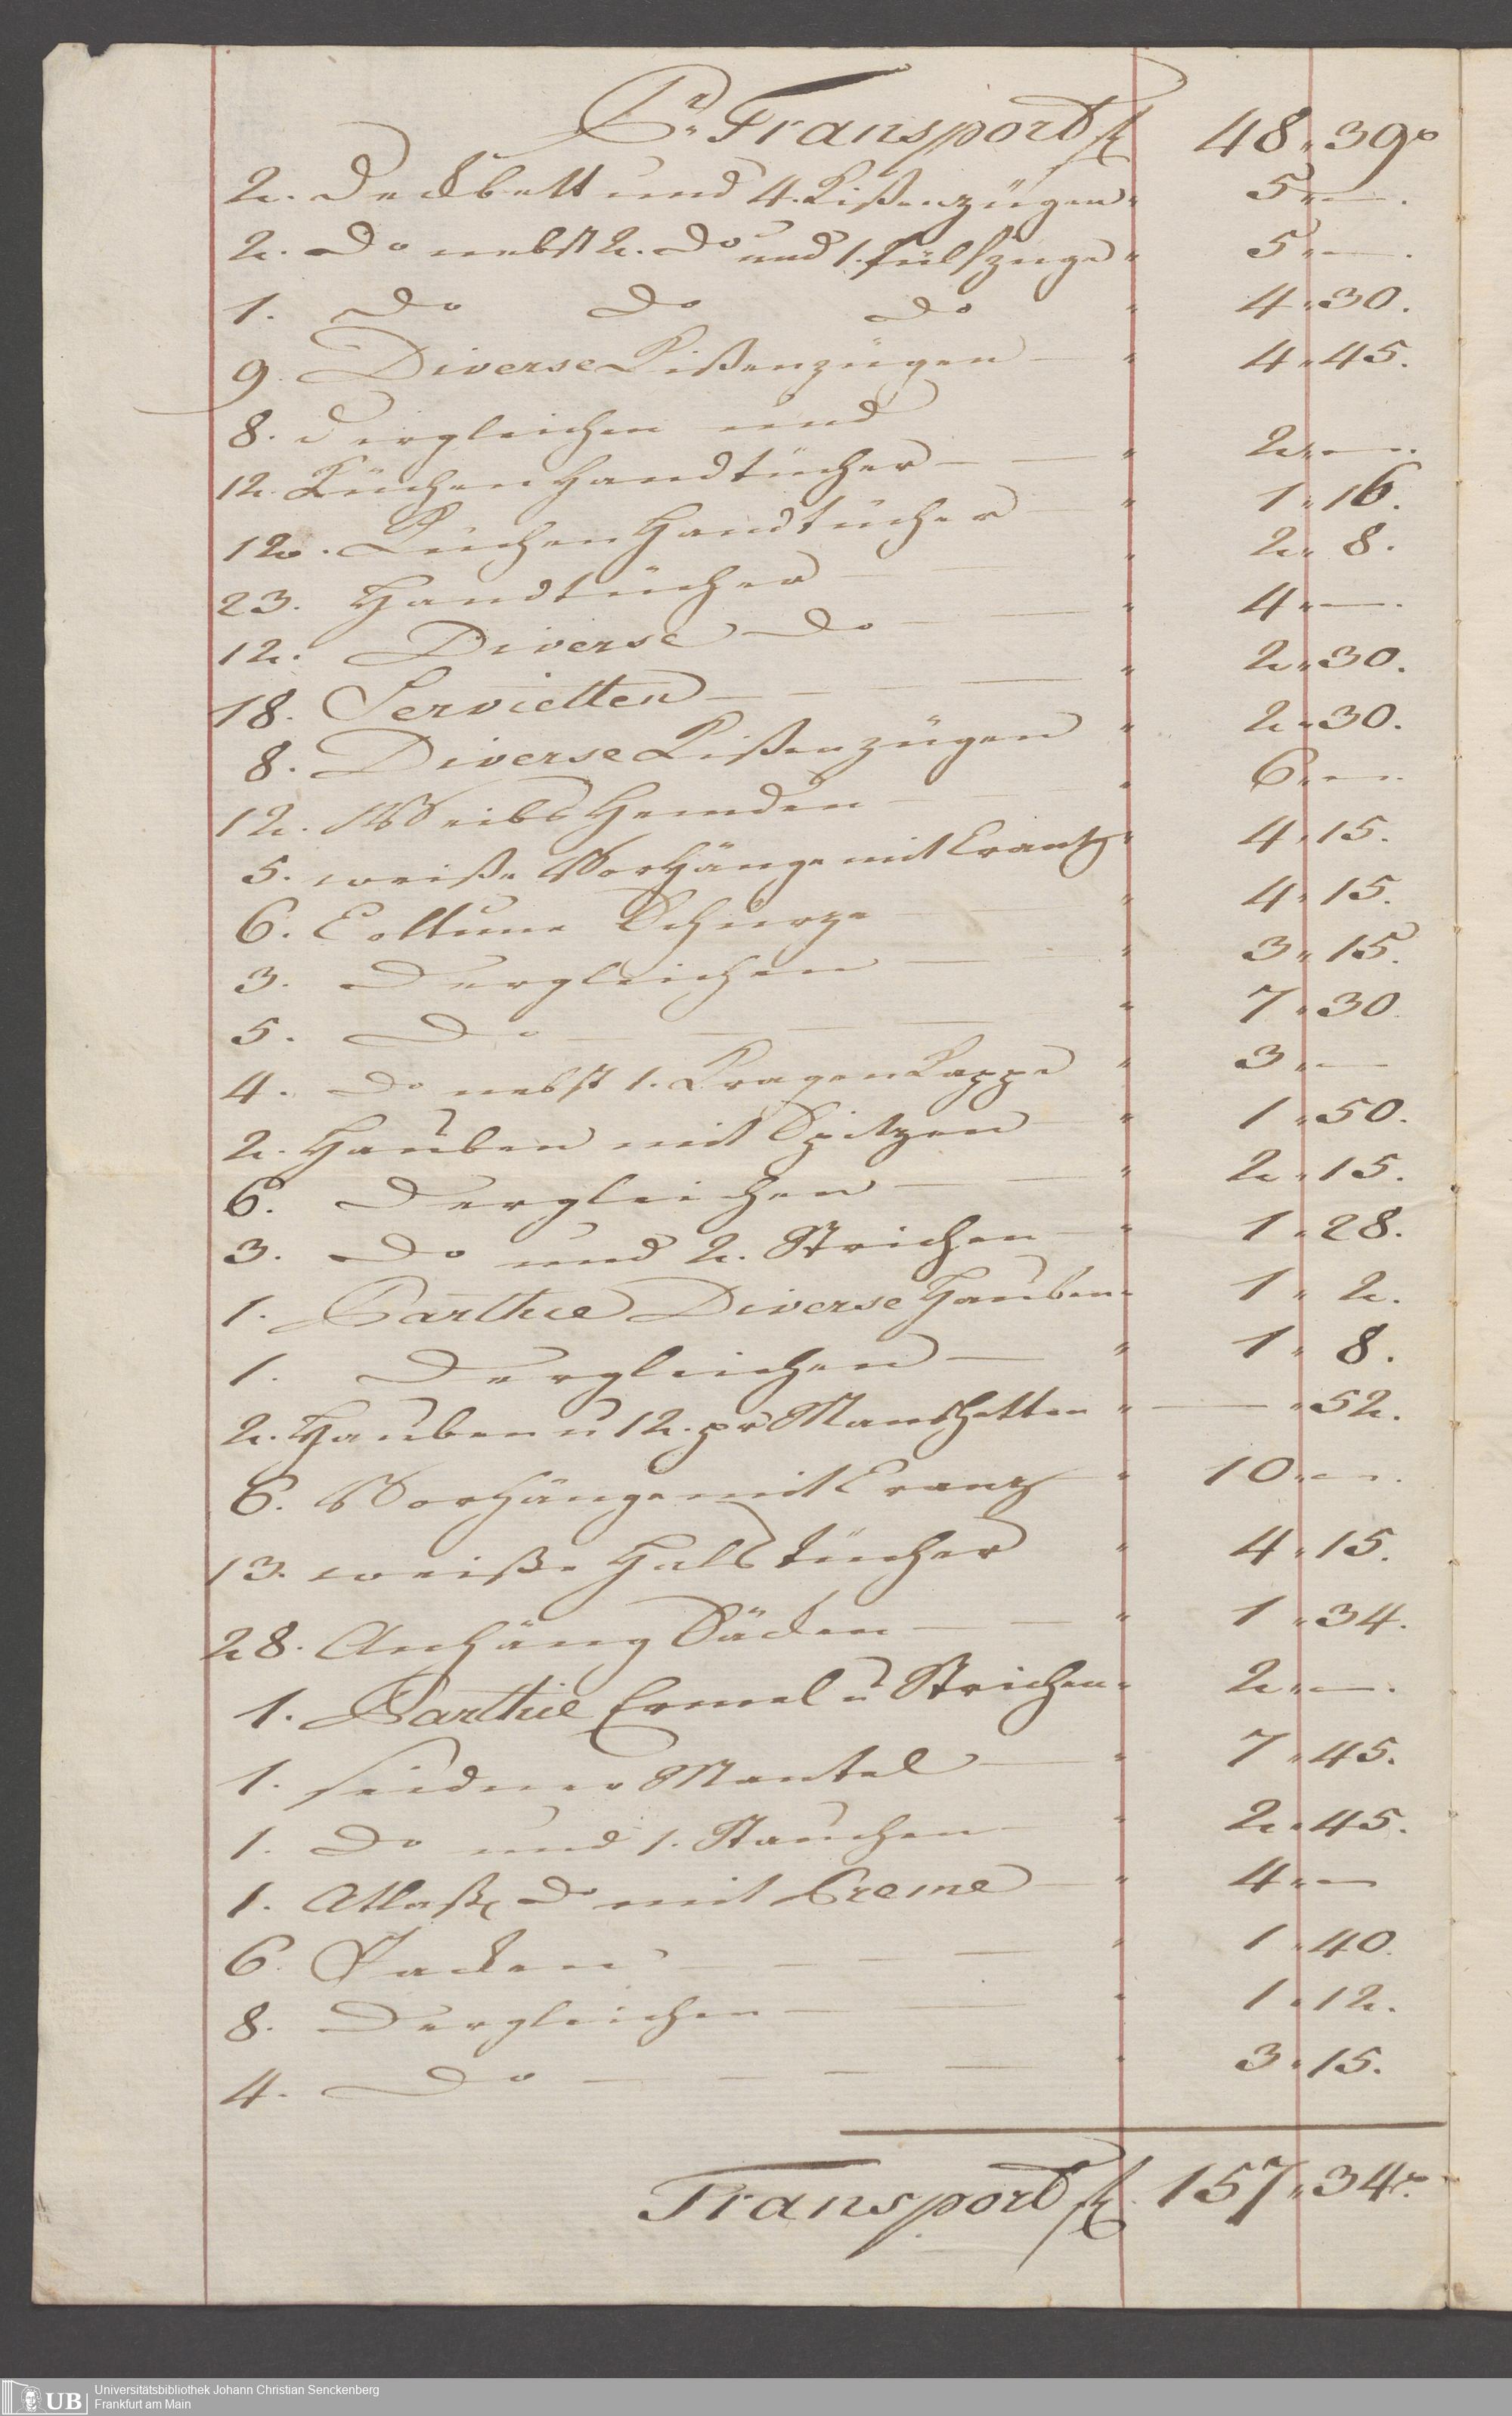 Pr. Transport f 48 " 39 x
2. Deckbett und 4. Kißenzügen " 5 " —.
2. Do nebst 2. Do und 1. Pülfzüge " 5 " —.
1. Do Do Do " 4 " 30.
9. Diverse Kißenzügen — " 4 " 45.
8. dergleichen und
12. Küchen Handtücher — — " 2 " —.
12. Küchen Handtücher — " 1 " 16.
23. Handtücher — — " 2 " 8.
12. Diverse Do — — " 4 " —.
18. Servietten — — — — " 2 " 30.
8. Diverse Kißenzügen " 2 " 30.
12. Weibs Hemden — — " 6 " —.
5. weiße Vorhänge mit Crantz " 4 " 15.
6. Cottune Schürze — — " 4 " 15.
3. Dergleichen — — " 3 " 15.
5. Do — — — — " 7 " 30.
4. Do nebst 1. Kragen Kappe " 3 " —
2. Hauben mit Spitzen — " 1 " 50.
6. Dergleichen — — " 2 " 15.
3. Do und 2. Strichen — " 1 " 28.
1. Parthie Diverse Hauben " 1 " 2.
1. Dergleichen — " 1 " 8.
2. Hauben u 12. pr Manschetten " — " 52.
6. Vorhänge mit Crantz " 10 " —.
13. weiße Halstücher " 4 " 15.
28. Anhäng Säcken — — " 1 " 34.
1. Parthie Ermel u Strichen " 2 " —.
1. seidener Mantel — " 7 " 45.
1. Do und 1. Stauchen — " 2 " 45.
1. Atlaß Do mit Breme — " 4 " —
6. Jacken — — — — " 1 " 40.
8. Dergleichen — — " 1 " 12.
4. Do — — — — " 3 " 15.
Transport f 157 " 34 x
UB Universitätsbibliothek Johann Christian Senckenberg
Frankfurt am Main